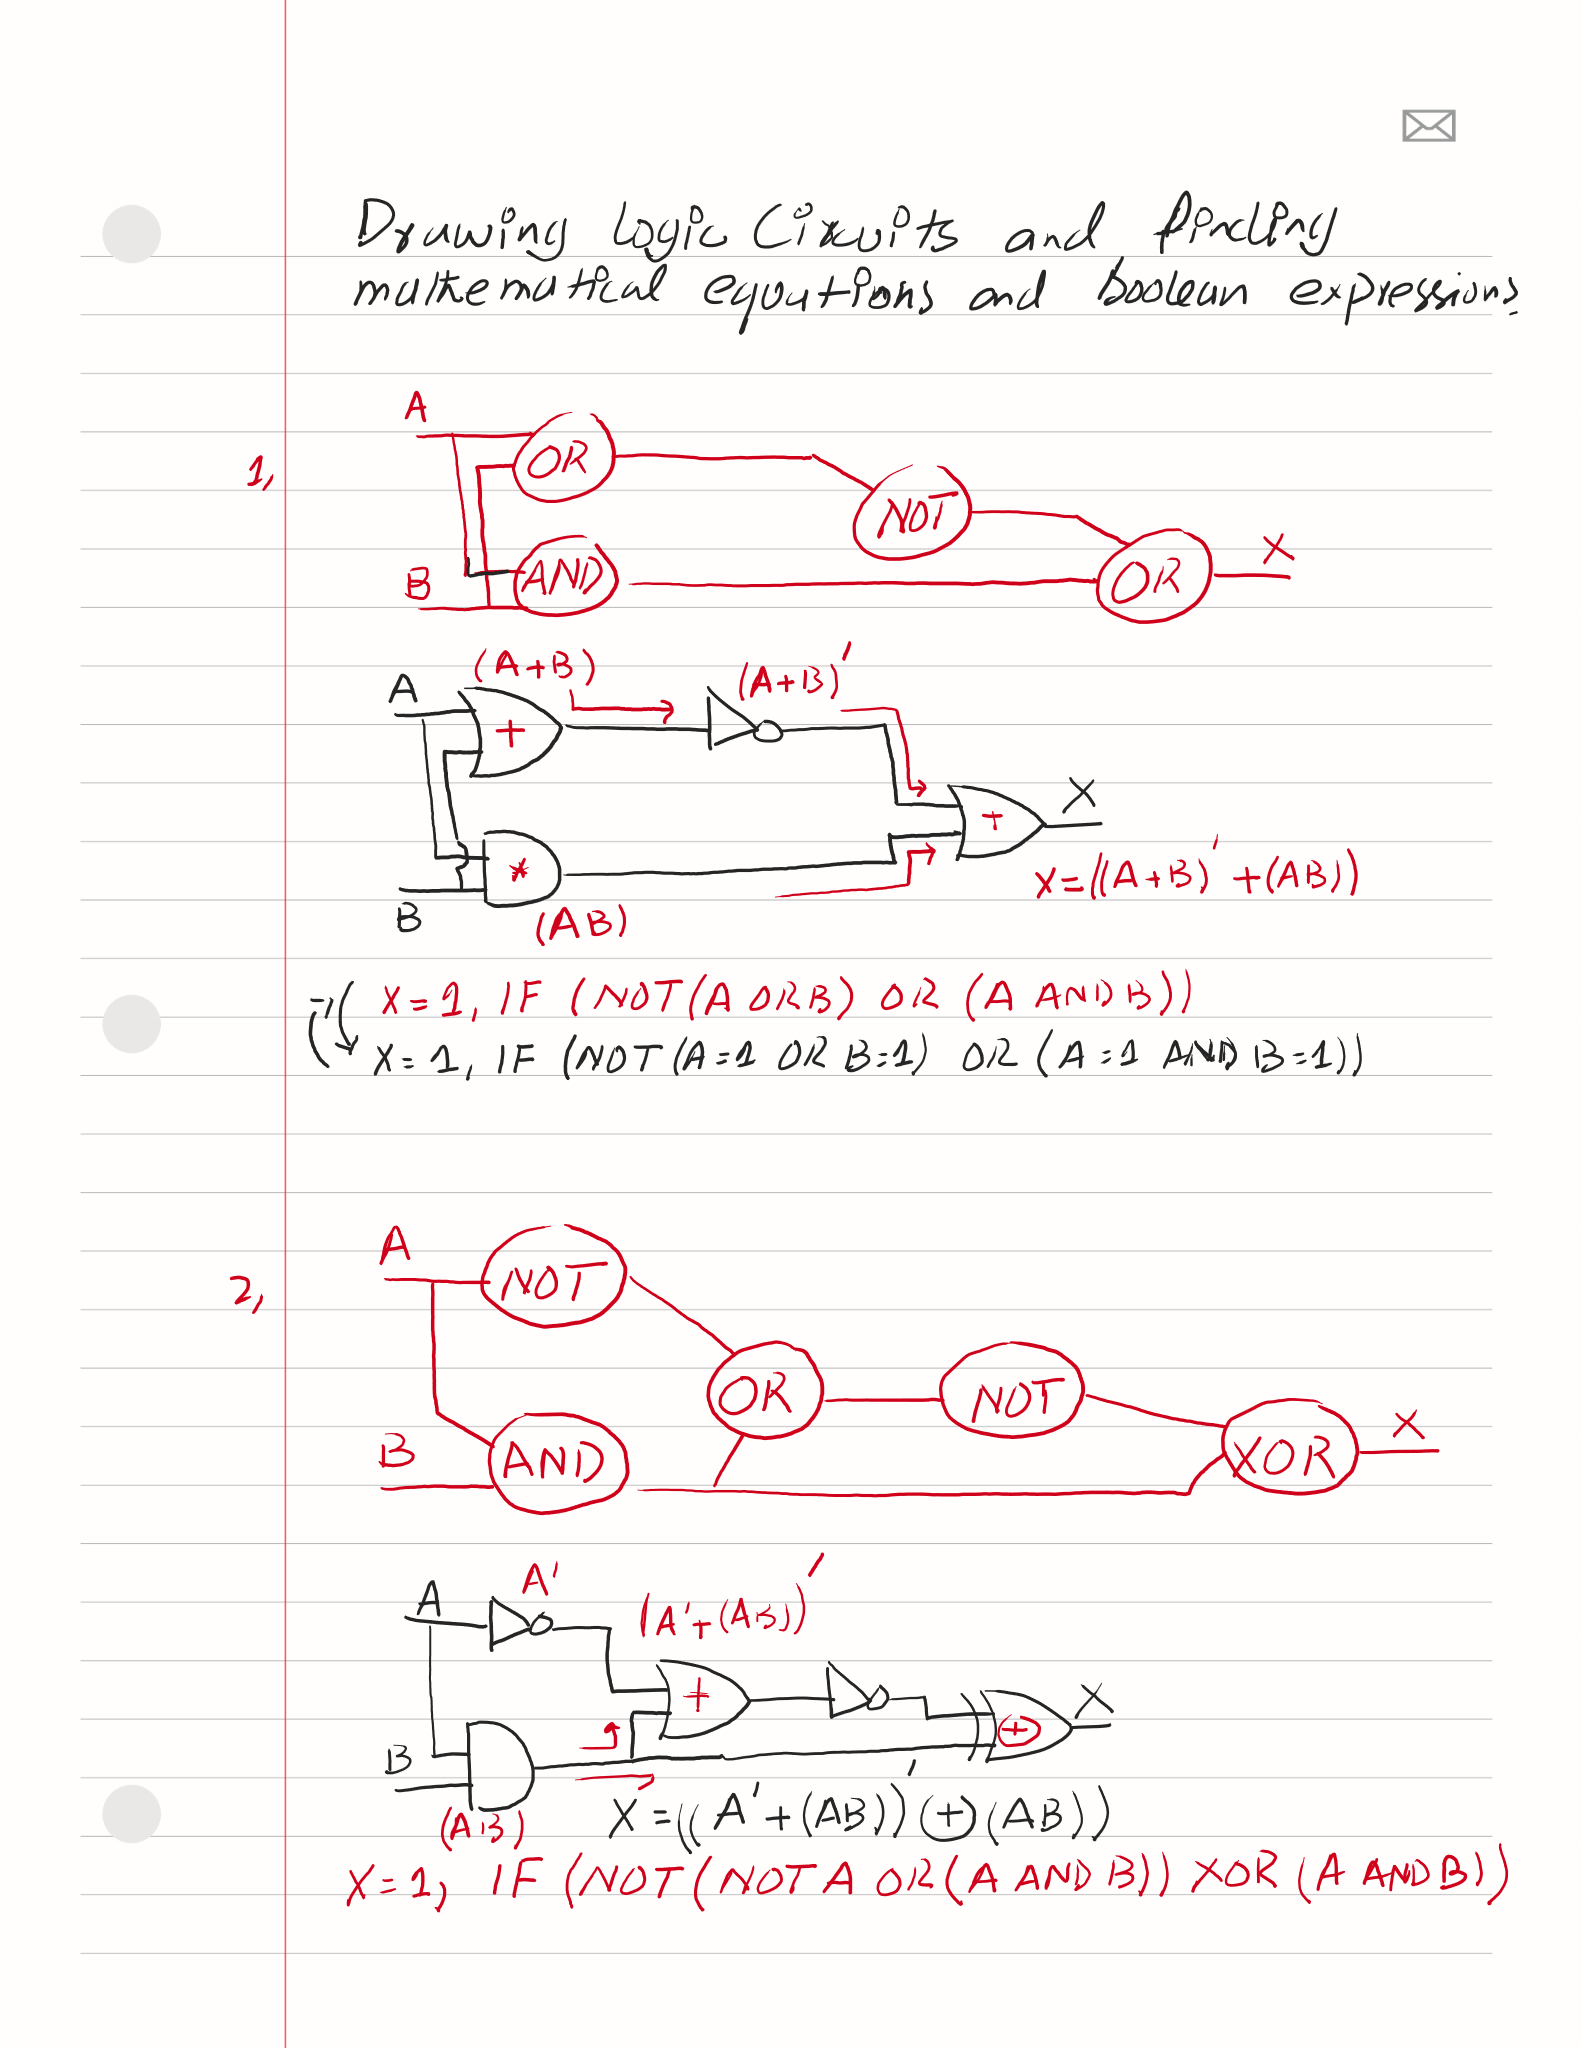 Drawing Logic Circuits and finding
mathematical equations and boolean expressions.
1,
A
OR
NOT
B
AND
OR
X
(A+B)
(A+B)'
A
+
X
+
*
X=((A+B)'+(AB))
B
(AB)
X=1, IF (NOT(A OR B) OR (A AND B))
X=1, IF (NOT(A=1 OR B=1) OR (A=1 AND B=1))
2,
A
NOT
OR
NOT
X
B
AND
XOR
A'
A
(A'+(AB))'
+
X
⊕
B
X=((A'+(AB))'⊕(AB))
(AB)
X=1, IF (NOT(NOT A OR (A AND B)) XOR (A AND B))